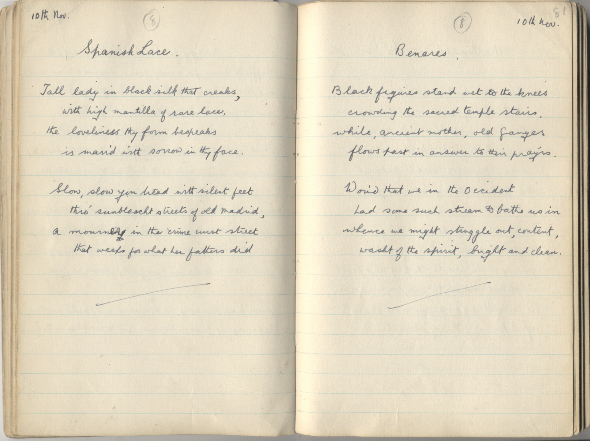 10th Nov.
Spanish Lace.
Tall lady in black silk that creaks,
with high mantilla of rare lace,
the loveliness thy form bespeaks
is marr'd with sorrow in thy face.
Slow, slow you tread with silent feet
thro' sunbleacht streets of old Madrid,
a mourner in the crime curst street
that weeps for what her fathers did
8
10th Nov.
81
Benares.
Black figures stand wet to the knees
crowding the sacred temple stairs,
while, ancient mother, old Ganges
flows past in answer to their prayers.
Wou'd that we in the Occident
had some such stream to bathe us in
whence we might struggle out, content,
washt of the spirit, bright and clean.